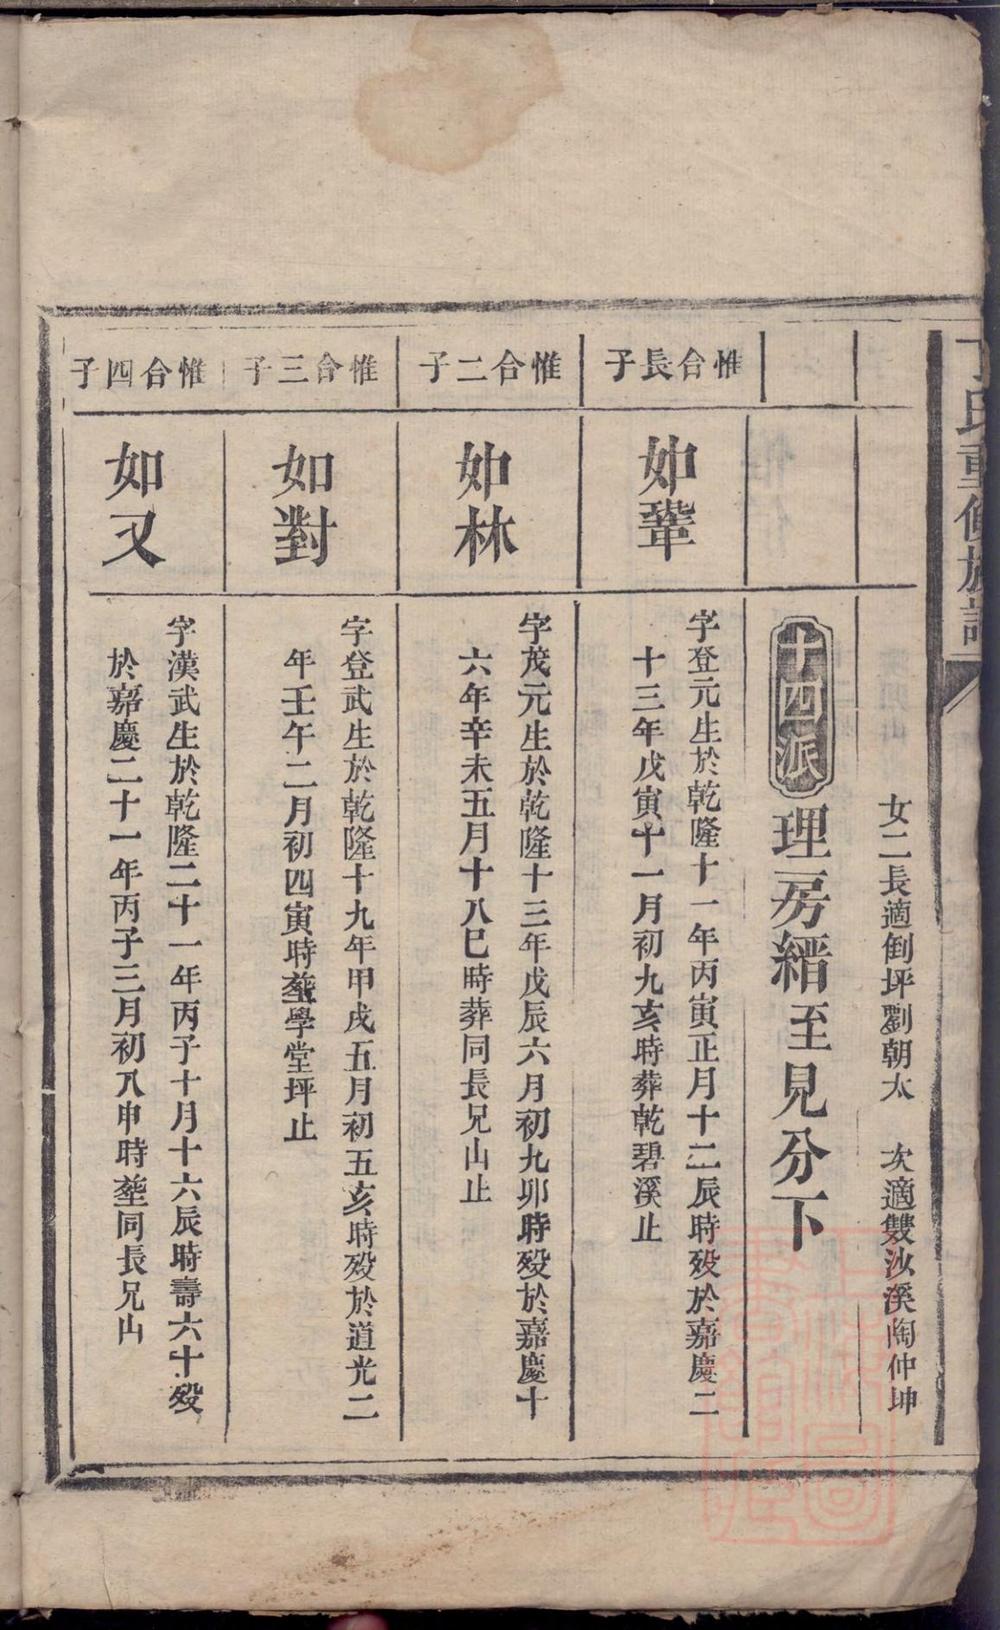 丁氏重修族譜
女二長適倒坪劉朝太　次適雙沙溪陶仲坤
十四派
理房縉至見分下
惟合長子
如鞏
字登元生於乾隆十一年丙寅正月十二辰時歿於嘉慶二
十三年戊寅十一月初九亥時葬乾碧溪止
惟合二子
如林
字茂元生於乾隆十三年戊辰六月初九卯時歿於嘉慶十
六年辛未五月十八巳時葬同長兄山止
惟合三子
如對
字登武生於乾隆十九年甲戌五月初五亥時歿於道光二
年壬午二月初四寅時塟學堂坪止
惟合四子
如又
字漢武生於乾隆二十一年丙子十月十六辰時壽六十歿
於嘉慶二十一年丙子三月初八申時塟同長兄山